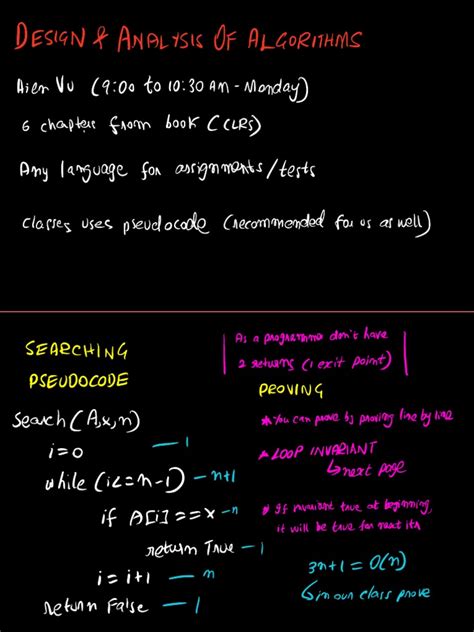 DESIGN & ANALYSIS OF ALGORITHMS
Aien Vu (9:00 to 10:30 AM - Monday)
6 chapters from book (CLRS)
Any language for assignments/tests
Classes uses pseudocode (recommended for us as well)
SEARCHING
PSEUDOCODE
Search(A,x,n)
i=0 — 1
while (i<=n-1) — n+1
if A[i]==x — n
return True — 1
i = i+1 — n
return False — 1
As a programmer don't have
2 returns (1 exit point)
PROVING
* You can prove by proving line by line
* LOOP INVARIANT
↳ next page
* If invariant true at beginning,
it will be true for next itr
3n+1 = O(n)
↳ in our class prove